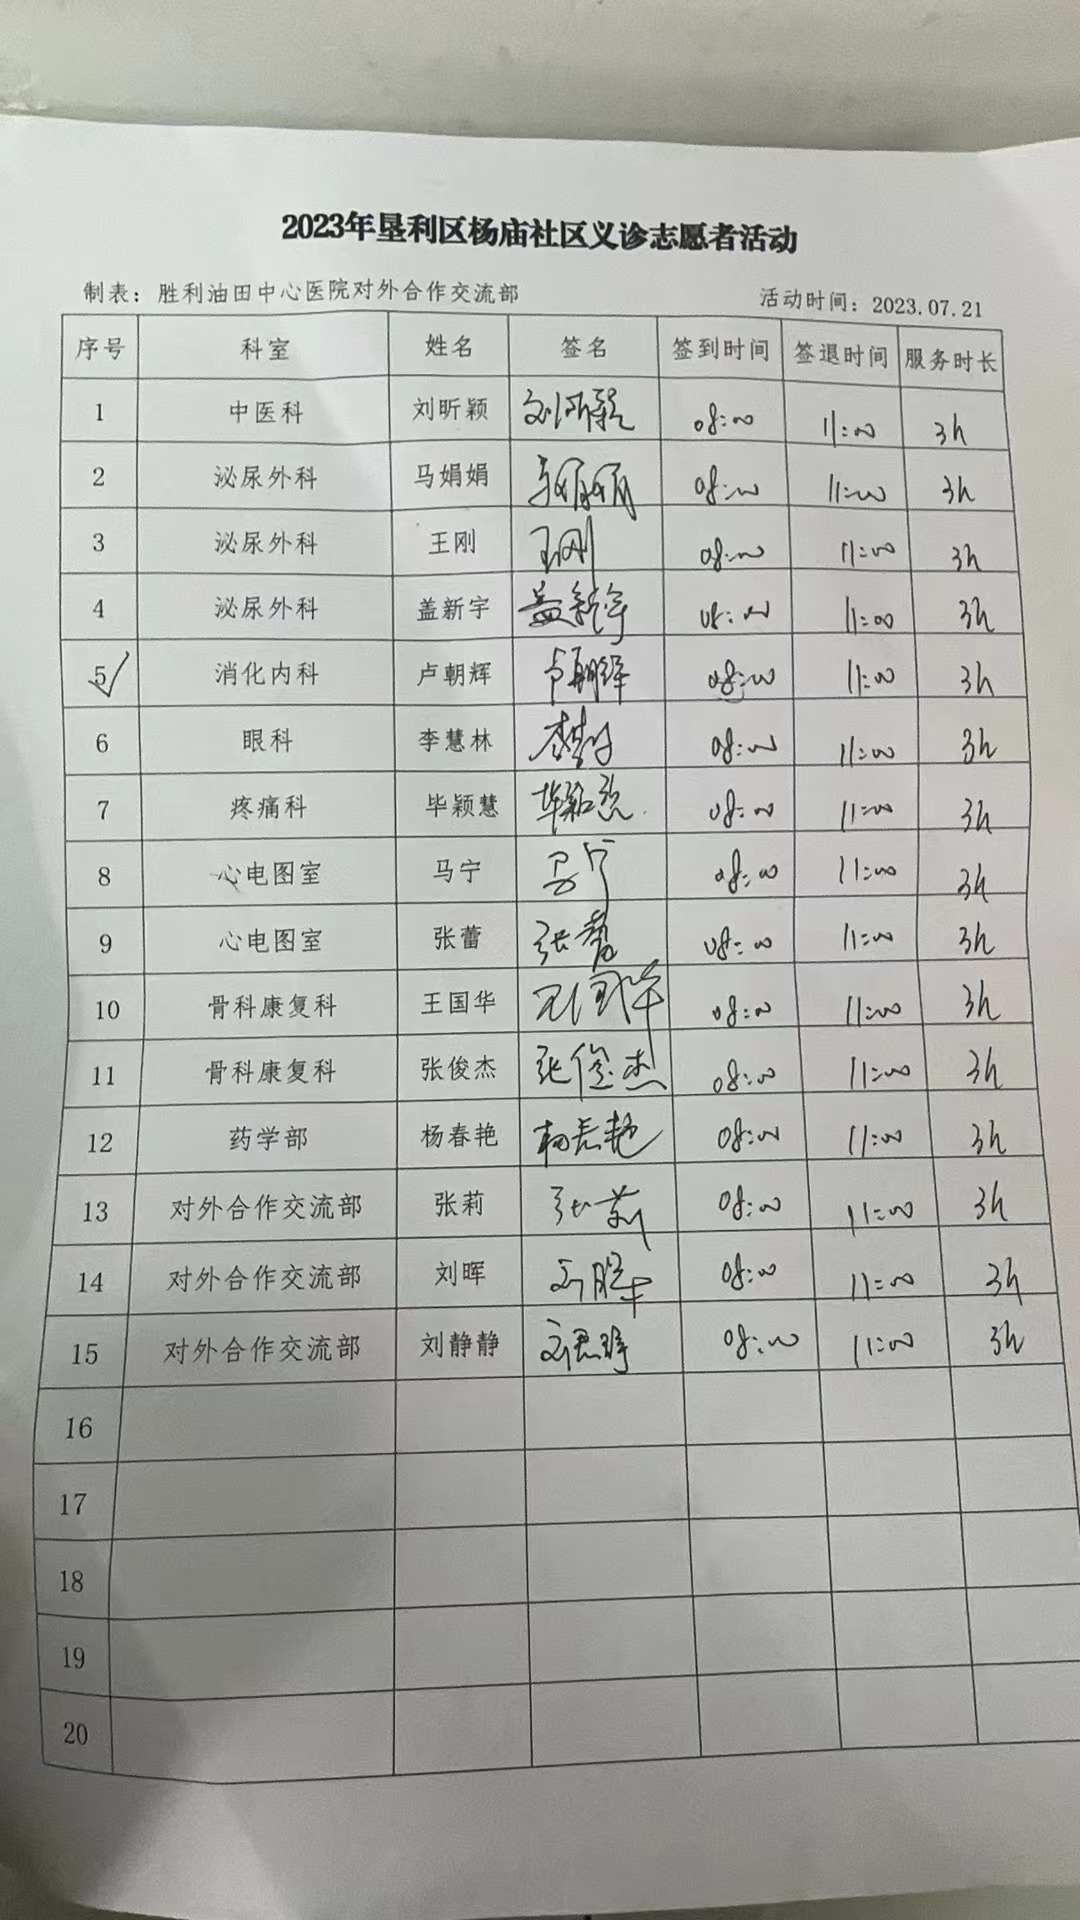 2023年垦利区杨庙社区义诊志愿者活动
制表：胜利油田中心医院对外合作交流部 活动时间：2023.07.21
序号 科室 姓名 签名 签到时间 签退时间 服务时长
1 中医科 刘昕颖 刘昕颖 08:00 11:00 3h
2 泌尿外科 马娟娟 马娟娟 08:00 11:00 3h
3 泌尿外科 王刚 王刚 08:00 11:00 3h
4 泌尿外科 盖新宇 盖新宇 08:00 11:00 3h
5 消化内科 卢朝辉 卢朝辉 08:00 11:00 3h
6 眼科 李慧林 李慧林 08:00 11:00 3h
7 疼痛科 毕颖慧 毕颖慧 08:00 11:00 3h
8 心电图室 马宁 马宁 08:00 11:00 3h
9 心电图室 张蕾 张蕾 08:00 11:00 3h
10 骨科康复科 王国华 王国华 08:00 11:00 3h
11 骨科康复科 张俊杰 张俊杰 08:00 11:00 3h
12 药学部 杨春艳 杨春艳 08:00 11:00 3h
13 对外合作交流部 张莉 张莉 08:00 11:00 3h
14 对外合作交流部 刘晖 刘晖 08:00 11:00 3h
15 对外合作交流部 刘静静 08:00 11:00 3h
16
17
18
19
20